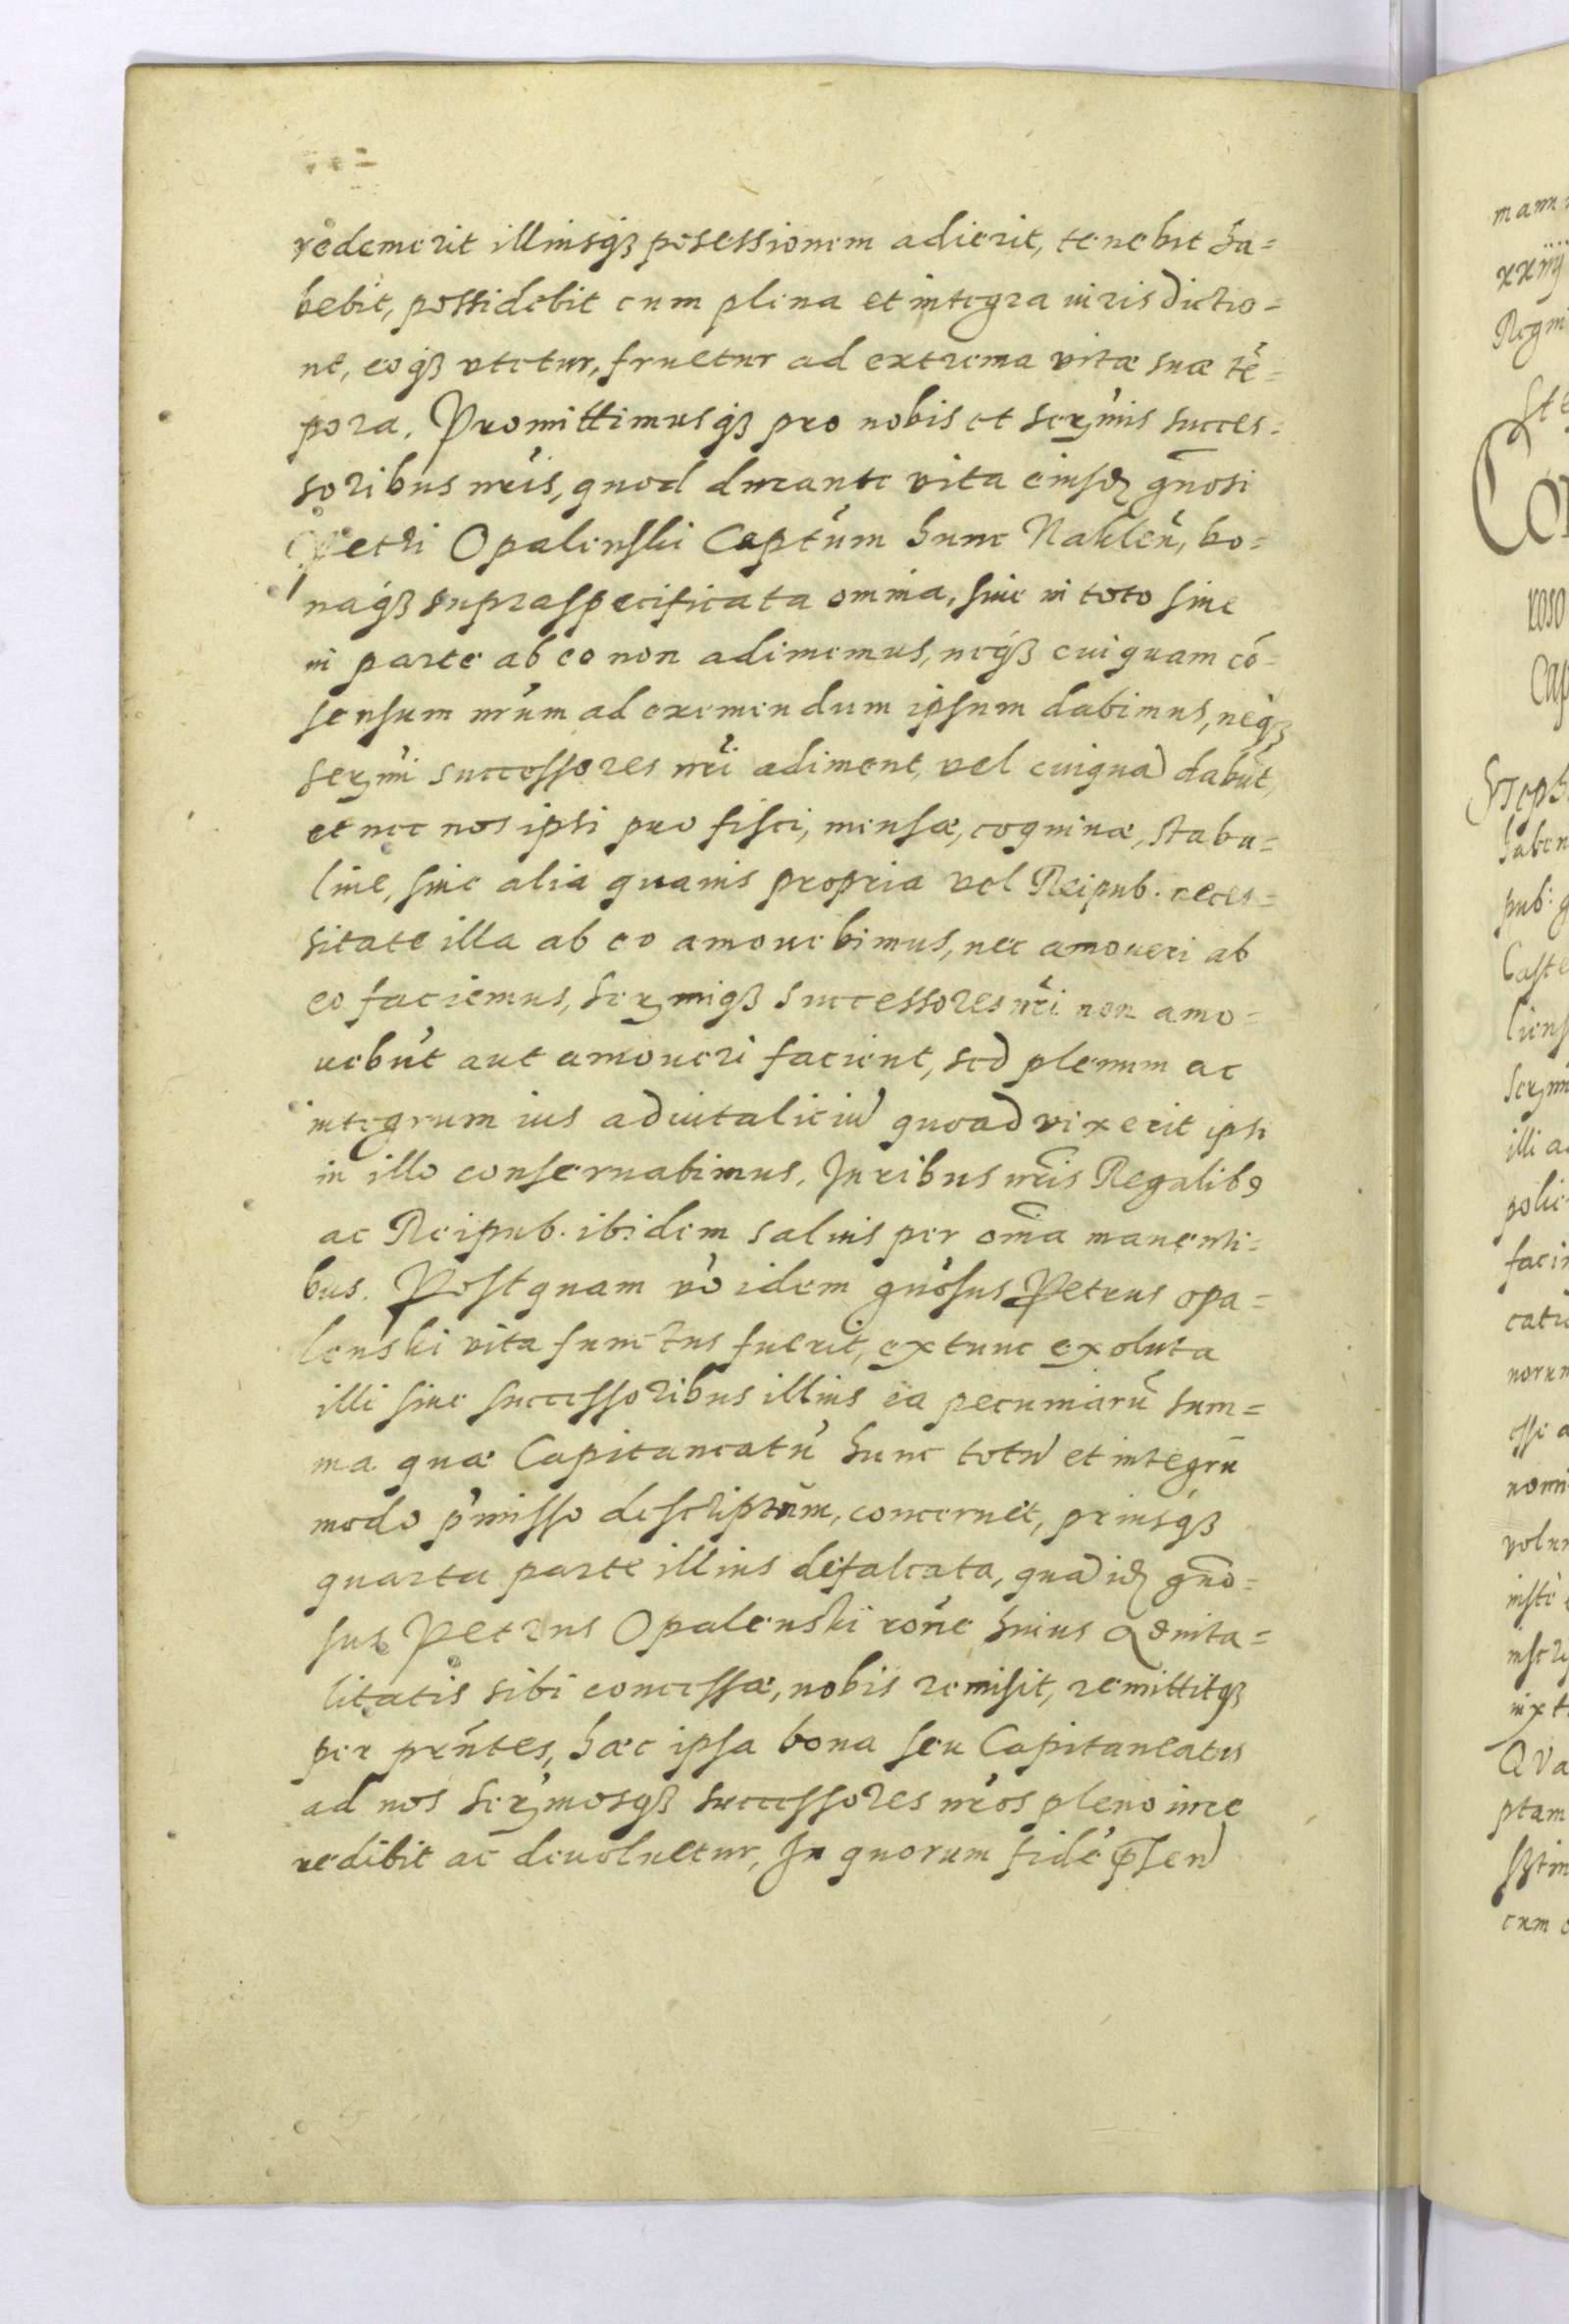 redemerit illiusqꜣ posessionem adierit, tenebit ha=
bebit, possidebit cum plena et integra iurisdictio=
ne, eoqꜣ vtetur, fruetur ad extrema vitæ suæ tē=
pora. Promittimusqꜣ pro nobis et serꝫmis succes=
soribus nr̄is, quod durante vita eiusdꝫ gn̄osi
Petri Opalenski Captūm hunc Naklen̄, bo=
naqꜣ supraspecificata omnia, siue in toto siue
in parte ab eo non adimemus, neqꜣ cuiquam cō=
sensum nr̄um ad eximendum ipsum dabimus, neqꜣ
serꝫmi successores nr̄i adiment, vel cuiquā dabūt,
et nec nos ipsi pro fisci, mensæ, coquinæ, stabu=
line, siue alia quauis propria vel Reipub. neces=
sitate illa ab eo amouebimus, nec amoueri ab
eo faciemus, serꝫmiqꜣ successores nr̄i non amo=
uebūt aut amoueri facient, sed plenum ac
integrum ius aduitaliciū quoad vixerit ipsi
in illo conseruabimus. Juribus nr̄is Regalibꝰ
ac Reipub. ibidem saluis per om̄ia manenti=
bus. Postquam v̄o idem gn̄osus Petrus Opa=
lenski vita functus fuerit, extunc exoluta
illi siue successoribus illius ea pecuniarū sum=
ma quæ Capitaneatū hunc totū et integrū
modo p̄misso descriptum, concernet, priusqꜣ
quarta parte illius defalcata, quā idꝫ gn̄o=
sus Petrus Opalenski rōne huius aduita=
litatis sibi concessæ, nobis remisit, remittitqꜣ
per prn̄tes, hæc ipsa bona seu Capitaneatus
ad nos serꝫmosqꜣ successores nr̄os pleno iure
redibit ac deuoluetur, In quorum fidē p̄sen